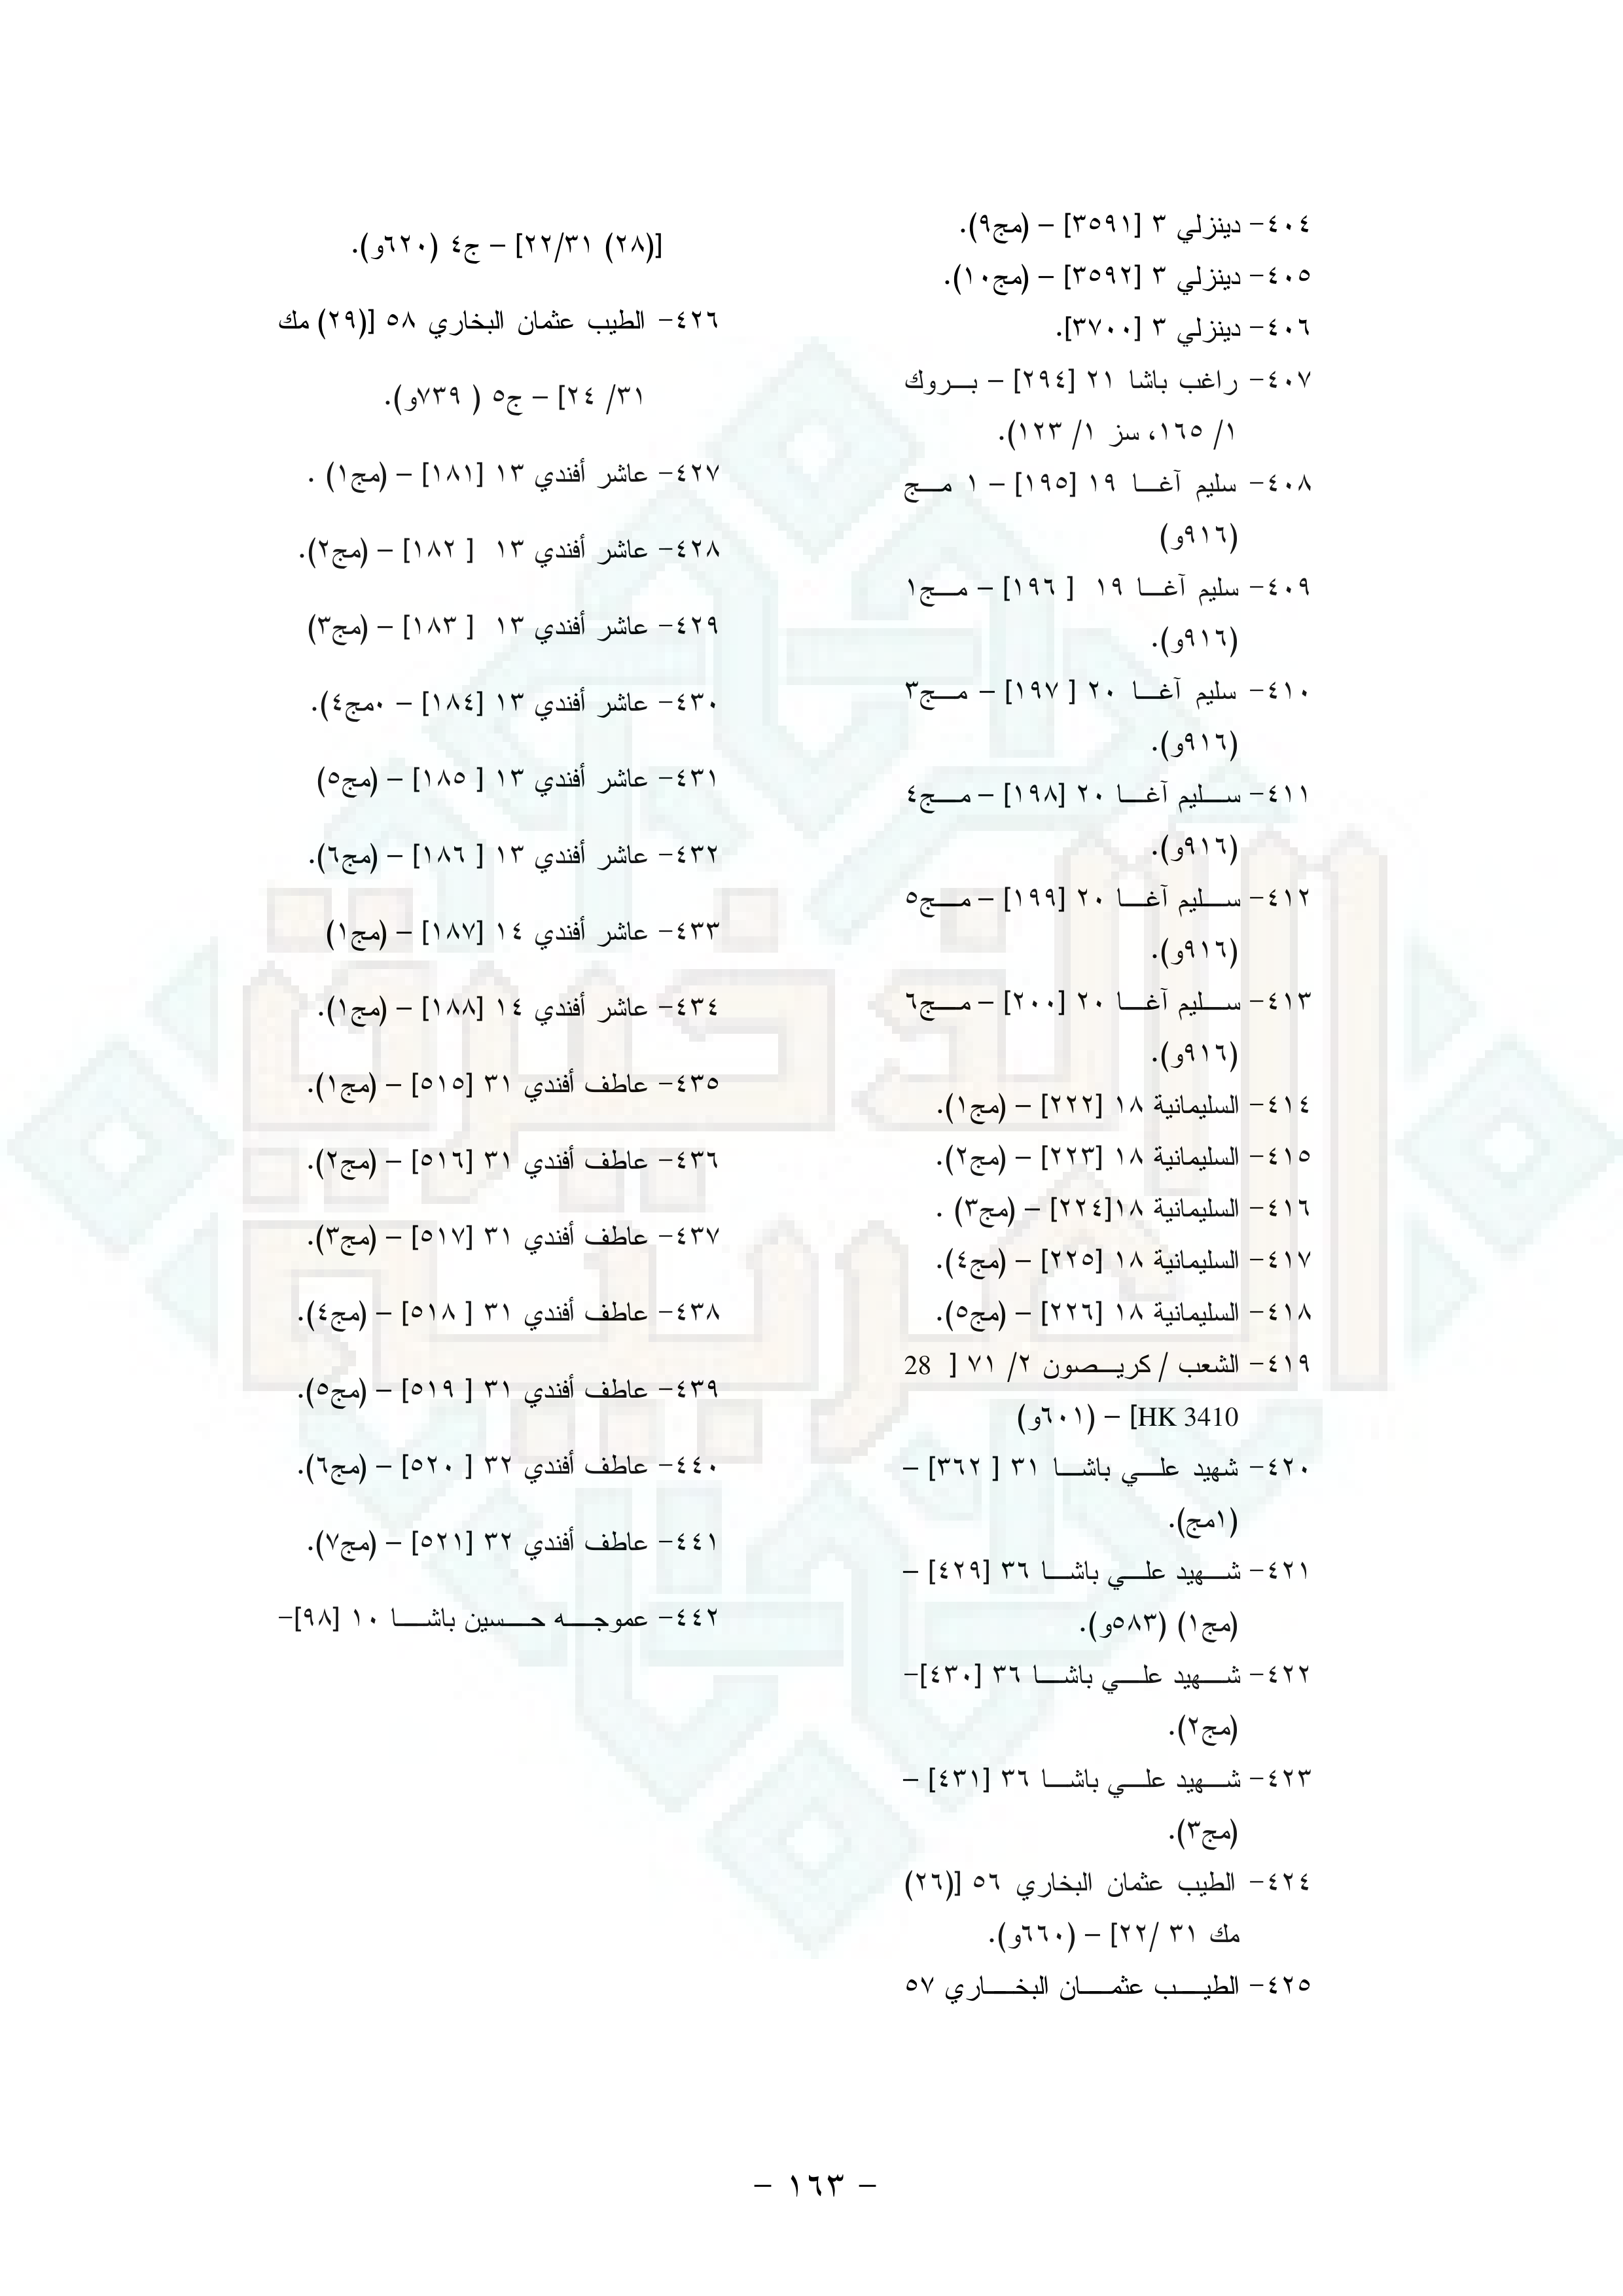 ٤٠٤- دينزلي ٣ [٣٥٩١] – (مج٩).
٤٠٥- دينزلي ٣ [٣٥٩٢] – (مج١٠).
٤٠٦- دينزلي ٣ [٣٧٠٠].
٤٠٧- راغب باشا ٢١ [٢٩٤] – بـــروك
١/ ١٦٥، سز ١/ ١٢٣).
٤٠٨- سليم آغـــا ١٩ [١٩٥] – ١ مـــج
(٩١٦و)
٤٠٩- سليم آغـــا ١٩ [ ١٩٦] – مـــج١
(٩١٦و).
٤١٠- سليم آغـــا ٢٠ [ ١٩٧] – مـــج٣
(٩١٦و).
٤١١- ســـليم آغـــا ٢٠ [١٩٨] – مـــج٤
(٩١٦و).
٤١٢- ســـليم آغـــا ٢٠ [١٩٩] – مـــج٥
(٩١٦و).
٤١٣- ســـليم آغـــا ٢٠ [٢٠٠] – مـــج٦
(٩١٦و).
٤١٤- السليمانية ١٨ [٢٢٢] – (مج١).
٤١٥- السليمانية ١٨ [٢٢٣] – (مج٢).
٤١٦- السليمانية ١٨[٢٢٤] – (مج٣) .
٤١٧- السليمانية ١٨ [٢٢٥] – (مج٤).
٤١٨- السليمانية ١٨ [٢٢٦] – (مج٥).
٤١٩- الشعب / كريـــصون ٢/ ٧١ [ 28
HK 3410] – (٦٠١و)
٤٢٠- شهيد علـــي باشـــا ٣١ [ ٣٦٢] –
(١مج).
٤٢١- شـــهيد علـــي باشـــا ٣٦ [٤٢٩] –
(مج١) (٥٨٣و).
٤٢٢- شـــهيد علـــي باشـــا ٣٦ [٤٣٠]-
(مج٢).
٤٢٣- شـــهيد علـــي باشـــا ٣٦ [٤٣١] –
(مج٣).
٤٢٤- الطيب عثمان البخاري ٥٦ [(٢٦)
مك ٣١ /٢٢] – (٦٦٠و).
٤٢٥- الطيـــب عثمـــان البخـــاري ٥٧
[(٢٨) ٢٢/٣١] – ج٤ (٦٢٠و).
٤٢٦- الطيب عثمان البخاري ٥٨ [(٢٩) مك
٣١/ ٢٤] – ج٥ ( ٧٣٩و).
٤٢٧- عاشر أفندي ١٣ [١٨١] – (مج١) .
٤٢٨- عاشر أفندي ١٣ [ ١٨٢] – (مج٢).
٤٢٩- عاشر أفندي ١٣ [ ١٨٣] – (مج٣)
٤٣٠- عاشر أفندي ١٣ [١٨٤] – ٠مج٤).
٤٣١- عاشر أفندي ١٣ [ ١٨٥] – (مج٥)
٤٣٢- عاشر أفندي ١٣ [ ١٨٦] – (مج٦).
٤٣٣- عاشر أفندي ١٤ [١٨٧] – (مج١)
٤٣٤- عاشر أفندي ١٤ [١٨٨] – (مج١).
٤٣٥- عاطف أفندي ٣١ [٥١٥] – (مج١).
٤٣٦- عاطف أفندي ٣١ [٥١٦] – (مج٢).
٤٣٧- عاطف أفندي ٣١ [٥١٧] – (مج٣).
٤٣٨- عاطف أفندي ٣١ [ ٥١٨] – (مج٤).
٤٣٩- عاطف أفندي ٣١ [ ٥١٩] – (مج٥).
٤٤٠- عاطف أفندي ٣٢ [ ٥٢٠] – (مج٦).
٤٤١- عاطف أفندي ٣٢ [٥٢١] – (مج٧).
٤٤٢- عموجـــه حـــسين باشـــا ١٠ [٩٨]-
– ١٦٣ –
الذخيرة
العربية